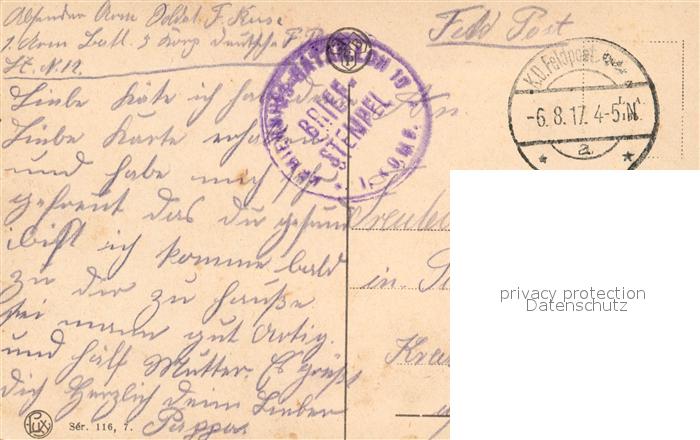 Absender Arm Soldat F. Kruse
1. Arm Batl. 3 Korp deutsche F. Post
St. N. 12.
Feld Post
K.D. Feldpost
-6.8.17. 4-5 N.
a
* *
BATAILLON 10
BRIEF
STEMPEL
1. KOMP.
Liebe Käte ich habe deine
Liebe Karte erhalten
und habe mich sehr
gefreut das du gesund
bist ich komme bald
zu dir zu hauße
sei mann gut Artig.
und hälf Mutter. Es grüßt
dich Herzlich dein Lieber
Pappa
An
in
Kreis
privacy protection
Datenschutz
LUX
Sér. 116, 7.